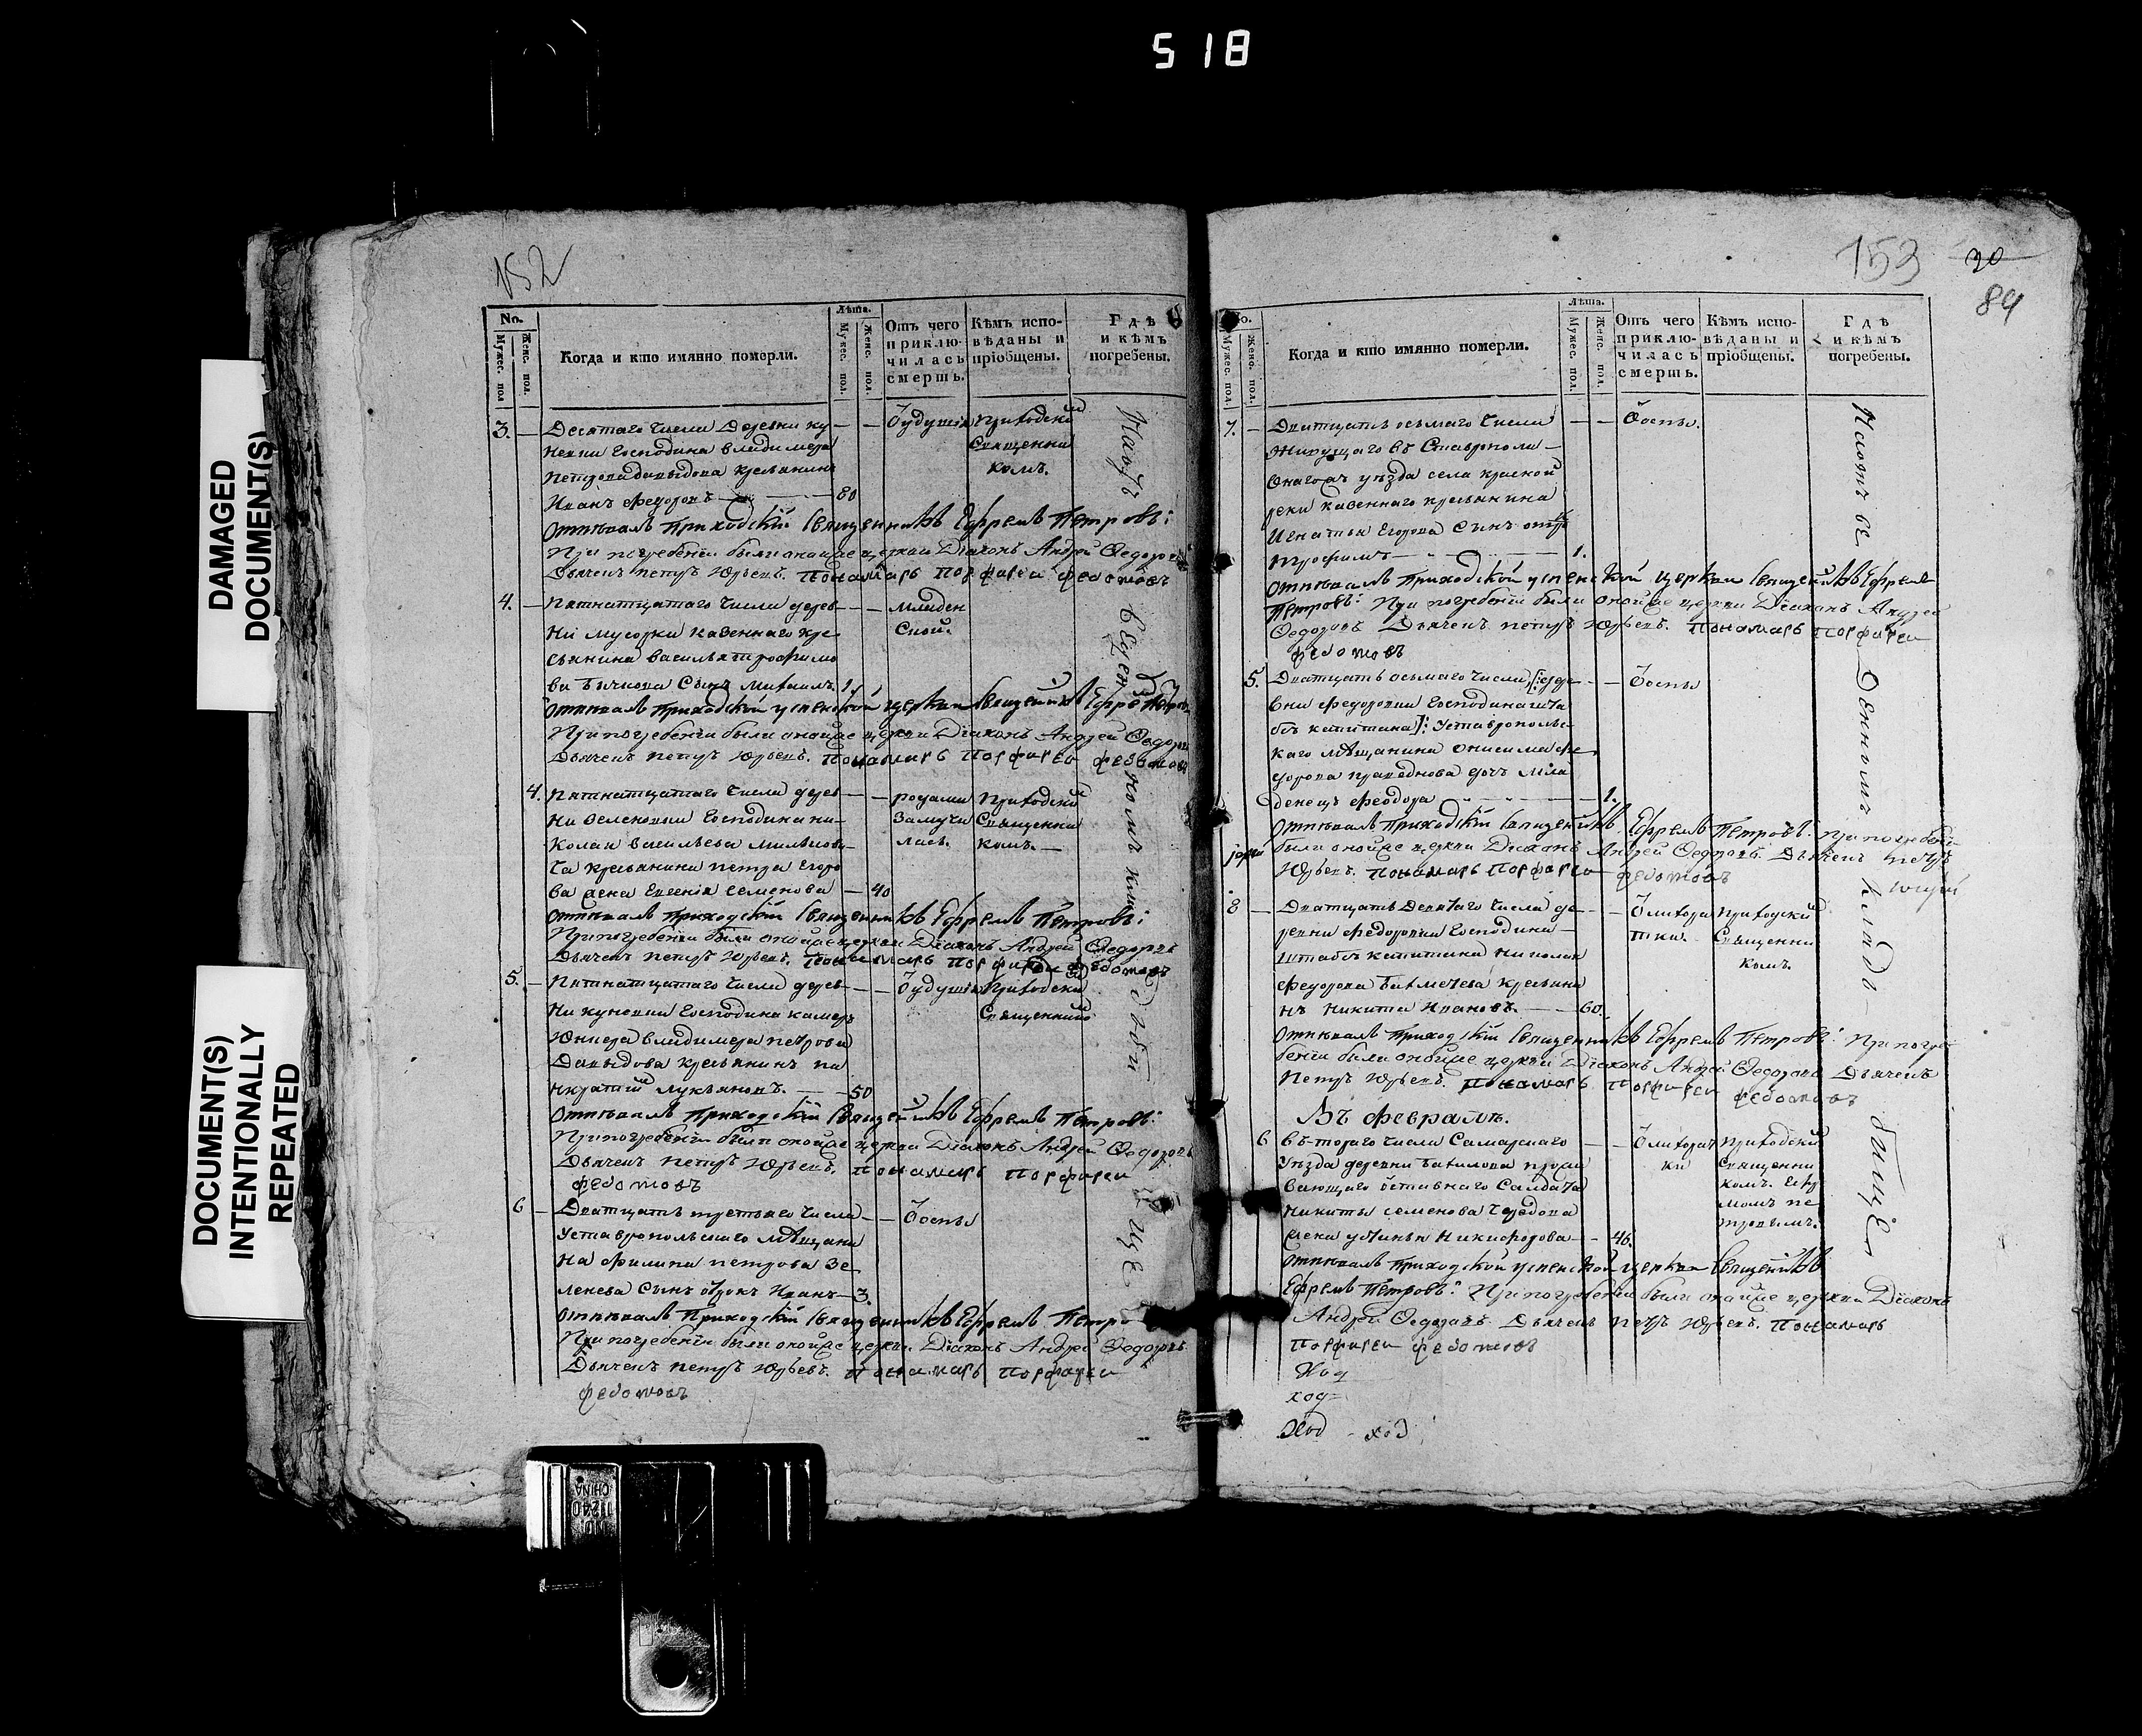 518
DAMAGED
DOCUMENT(S)
DOCUMENT(S)
INTENTIONALLY
REPEATED
152
No.
Мужес. пол
Женс. пол.
Когда и кто имянно померли.
Лѣта.
Мужес. пол.
Женс. пол.
Отъ чего приключилась смерть.
Кѣмъ исповѣданы и пріобщены.
Гдѣ и кѣмъ погребены.
3. Десятаго числа Деревни Ку
неевки Господина владимера
Петрова давыдова крестьянинъ
Иванъ Федоровъ 80
Отъ удушья
Приходскимъ
Священни
комъ.
Отпѣвалъ Приходскій священникъ Ефремъ Петровъ:
При погребеніи были онойже церкви Діаконъ Андрей Федоровъ
Дьячекъ петръ Юрьевъ. пономарь порфирей федотовъ
4. Пятнатцатаго числа дерев
ни мусорки казеннаго кре
стьянина василья трофимо
ва сынъ михаилъ. 1.
младен
ской.
Отпѣвалъ приходской успенской церкви священникъ Ефремъ Петровъ
При погребеніи были онойже церкви Діаконъ Андрей Федоровъ
Дьячекъ петръ Юрьевъ. пономарь порфирей федотовъ
4. Пятнатцатаго числа дерев
ни зеленовки Господина ни
колая васильева
крестьянина петра Егоро
ва жена Евгенія семенова 40
родами
замучи
лась.
Приходским
Священни
комъ.
Отпѣвалъ приходскій священникъ Ефремъ Петровъ:
При погребеніи были онойже церкви Діаконъ Андрей Федоровъ
Дьячекъ петръ Юрьевъ. пономарь порфирей федотовъ
5. Пятнатцатаго числа дерев
ни кунеевки Господина камеръ
Юнкера владимера петрова
Давыдова крестьянинъ па
нкратій Лукьяновъ. 50
Отъ удушья
Приходским
Священник
Отпѣвалъ приходскій священникъ Ефремъ Петровъ:
При погребеніи были онойже церкви Діаконъ Андрей Федоровъ
Дьячекъ петръ Юрьевъ. пономарь порфирей
федотовъ
6 Дватцать третьяго числа
Уставропольскаго мѣщани
на филипа петрова Зе
ленева сынъ отрокъ Иванъ 3.
Отъ оспы
Отпѣвалъ Приходскій священникъ Ефремъ Петро
При погребеніи были онойже церкви Діаконъ Андрей Федоровъ
Дьячекъ петръ Юрьевъ. пономарь порфирей
федотовъ
153
30
84
No.
Мужес. пол.
Женс. пол.
Когда и кто имянно померли.
Лѣта.
Мужес. пол.
Женс. пол.
Отъ чего приключилась смерть.
Кѣмъ исповѣданы и пріобщены.
Гдѣ и кѣмъ погребены.
7. Дватцать осьмаго числа
Живущаго въ Ставрополи
онагожъ уѣзда села красной
реки казеннаго крестьянина
Игнатья Егорова сынъ
трофимъ 1.
Отъ оспы.
Отпѣвалъ приходской успенской церкви священникъ Ефремъ
Петровъ: При погребеніи были онойже церкви Діаконъ Андрей
Федоровъ Дьячекъ петръ Юрьевъ. пономарь порфирей
федотовъ
5. Дватцать осьмаго числа дере
вни федоровки Господина шта
бсъ капитана уставрополь
каго мѣщанина онисима фе
дорова дочь мла
денецъ феодора 1.
Отъ оспы
Отпѣвалъ приходскій священникъ Ефремъ Петровъ: При погребеніи
были онойже церкви Діаконъ Андрей Федоровъ. Дьячекъ петръ
Юрьевъ. пономарь порфирей федотовъ
8 Дватцать девятаго числа де
ревни федоровки Господина
штабсъ капитана николая
федорова Бахметева крестьяни
нъ Никита Ивановъ. 60.
Отъ лихора
тки.
Приходским
Священни
комъ.
Отпѣвалъ приходскій священникъ Ефремъ Петровъ: При погре
беніи были онойже церкви Діаконъ Андрей Федоровъ Дьячекъ
Петръ Юрьевъ. пономарь порфирей федотовъ
Въ Февралѣ.
6 въ-тораго числа Самарскаго
уѣзда деревни прожи
вающаго отставнаго салдата
Никиты семенова
жена устинья Никифорова 46.
Отъ лихорат
ки
Приходским
Священни
комъ. Ефре
момъ пе
тровымъ.
Отпѣвалъ приходской успенской церкви священникъ
Ефремъ Петровъ: При погребеніи были онойже церкви Діаконъ
Андрей Федоровъ. Дьячекъ петръ Юрьевъ. пономарь
порфирей федотовъ
ход
ход
ход